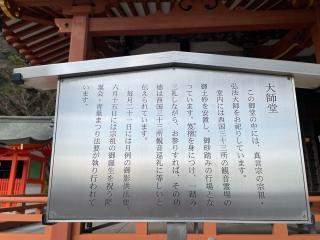 大師堂
この御堂の中には、真言宗の宗祖・
弘法大師をお祀りしています。
堂内には西国三十三所の観音霊場の
御土砂を安置し、御砂踏みの行場とな
っています。笈摺を身につけ、一踏み
三礼しながら、お参りすれば、その功
徳は西国三十三所観音巡礼に等しいと
伝えられています。
毎月二十一日には月例の御影供法要、
六月十五日には宗祖の御誕生を祝う降
誕会・青葉まつり法要が執り行われて
います。